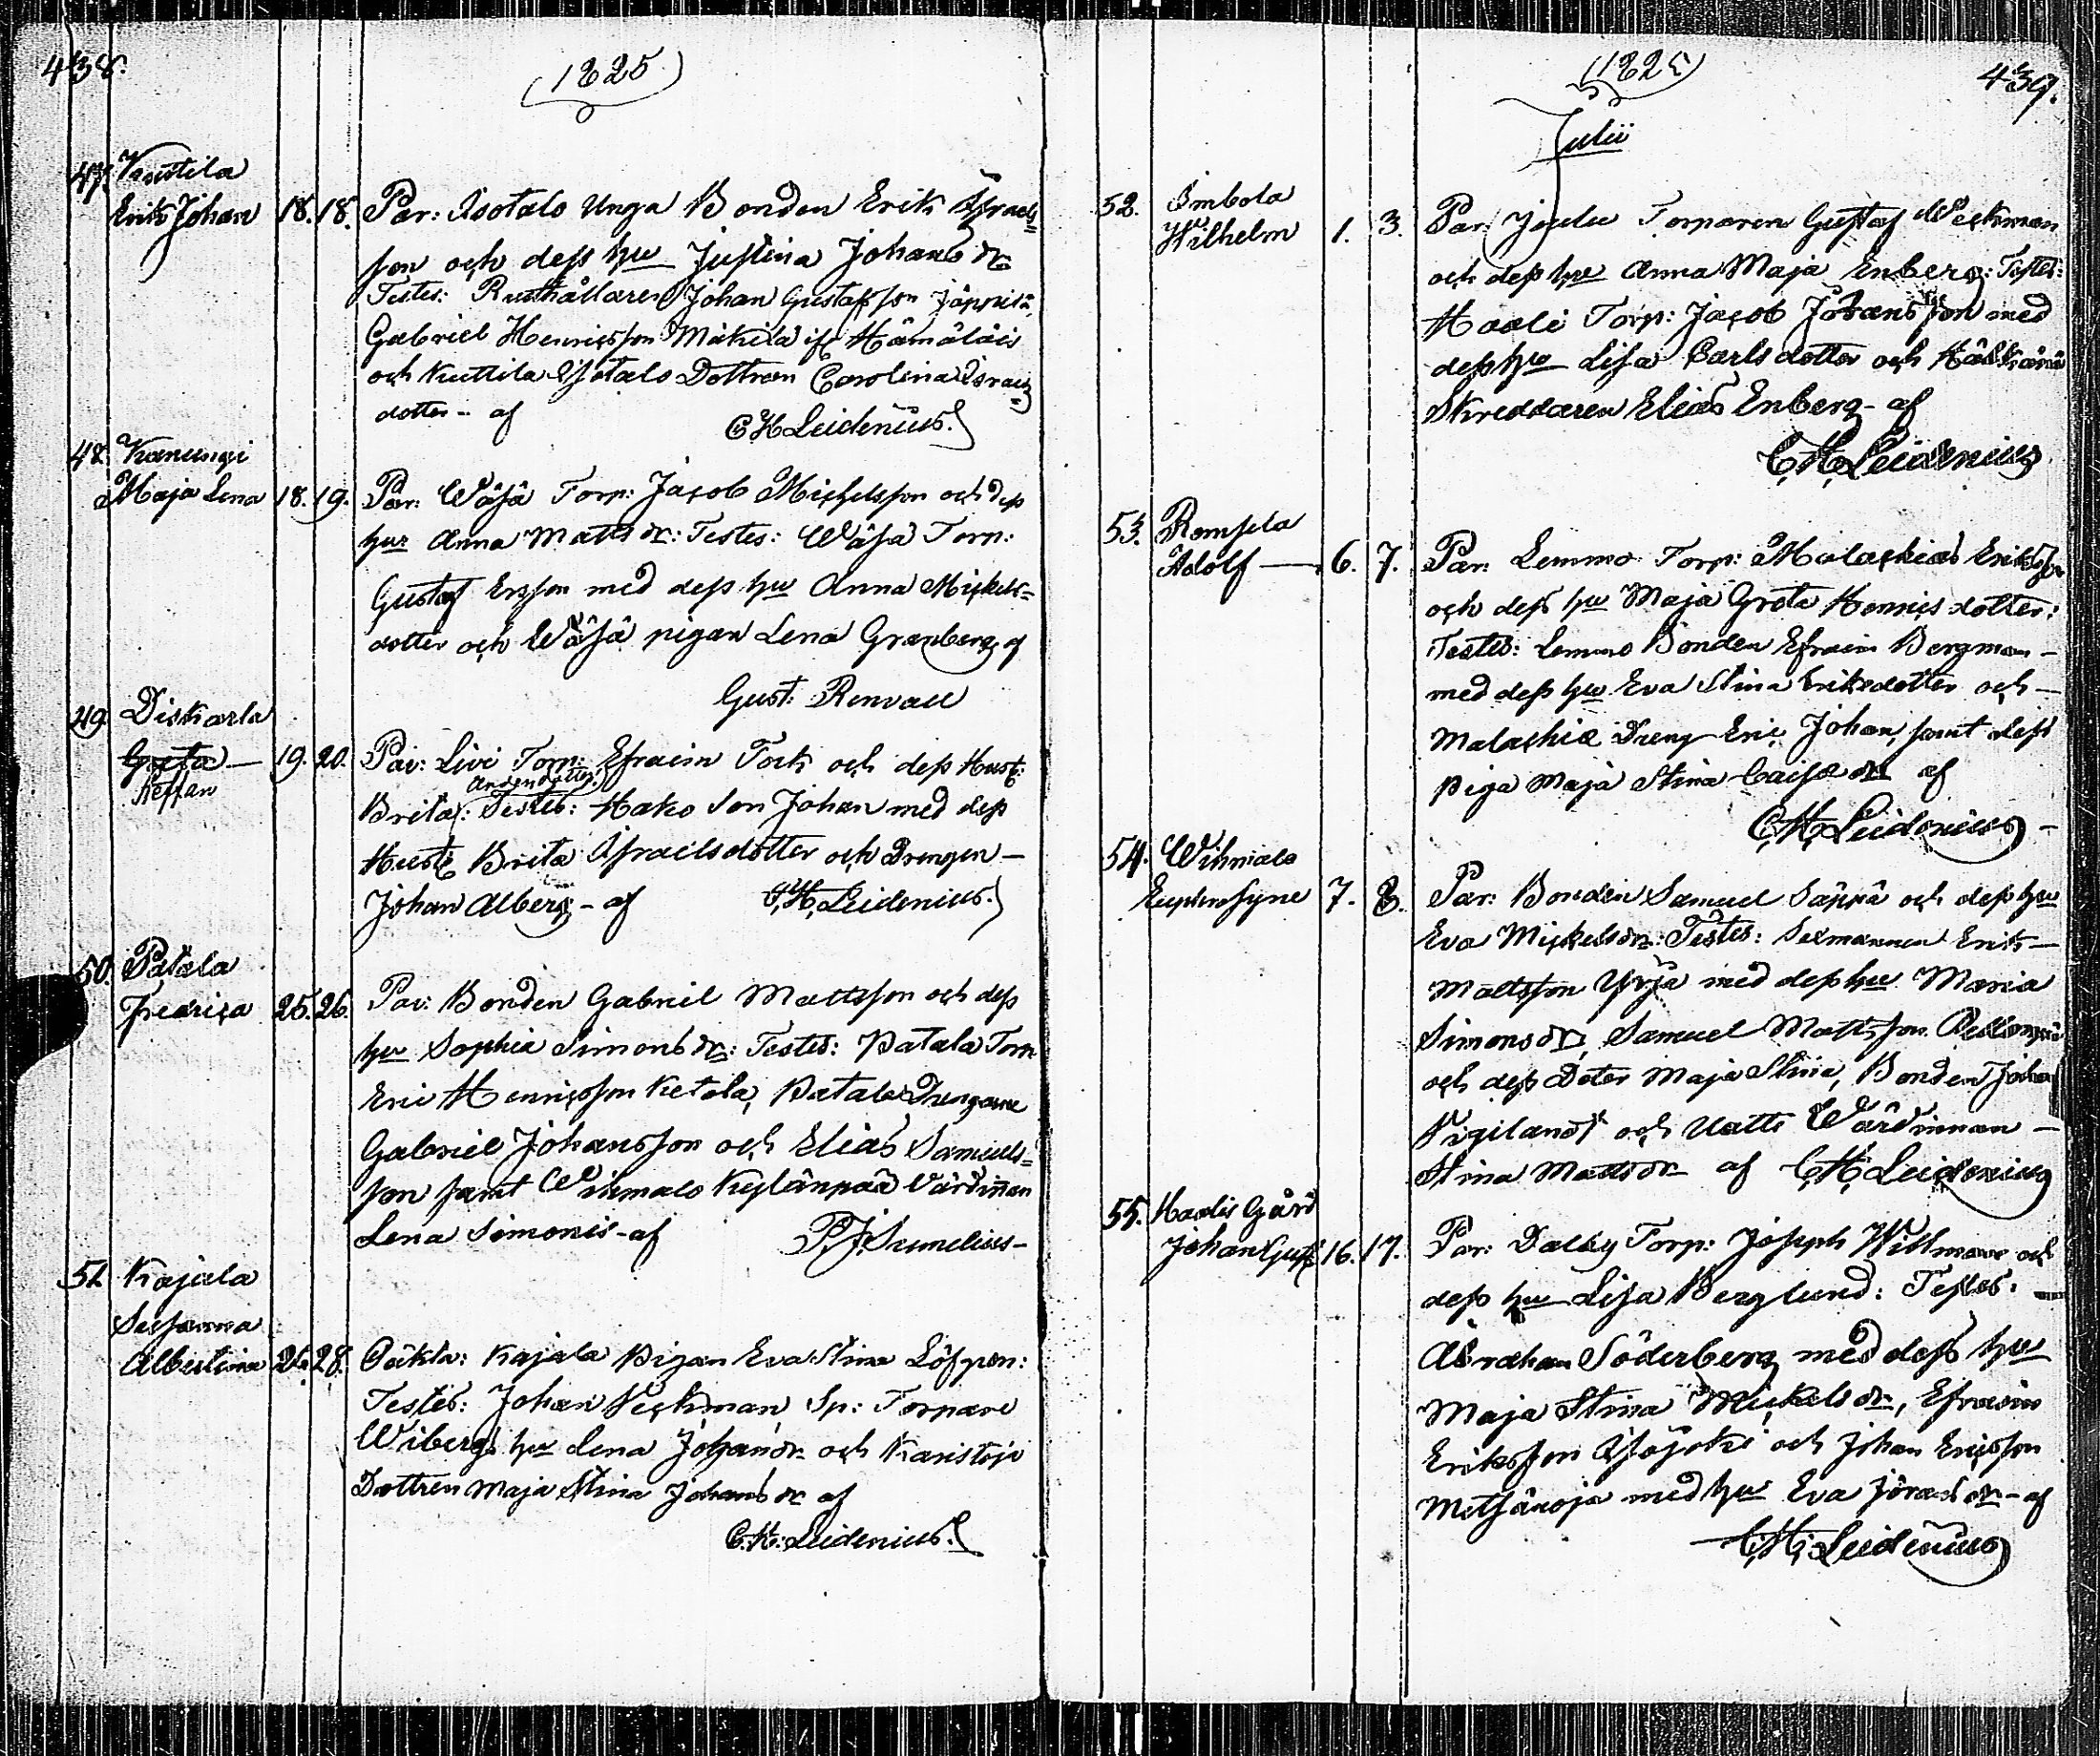 438.
(1825)
47. Knutila
Erik Johan 18. 18. Par: Isotalo Unga Bonden Erik Israels
son och dess hu Justina Johans dr
Testes: Rusthållaren Johan Gustafsson Jäppilä,
Gabriel Henricsson Mäkelä if Hämäläis
och Kuttila Isotalo Dottren Carolina Israels
dotter - af C H Leidenius.
48. Kanungi
Maja Lena 18. 19. Par: Wäsä Torp: Jacob Michelsson och dess
hur Anna Matts dr: Testes: Wäsa Torp:
Gustaf Ersson med dess hu Anna Mickels=
dotter och Wäsä pigan Lena Granberg af
Gust: Renvall
49. Diskarla
Greta — 19. 20. Par: Livi Torp: Efraim Fock och dess Hust:
Steffan
Andersdotter
Brita: Testes: Hako Son Johan med dess
Hust: Brita Israelsdotter och Drengen —
Johan Alberg - af C.H. Leidenius.
50. Patala
Fredrica 25. 26. Par: Bonden Gabriel Mattsson och dess
hu Sophia Simons dr: Testes: Patala Torp
Eric Henricsson Ketola, Patala Drengarne
Gabriel Johansson och Elias Samuels=
son samt Wihmalo Kylänpää Värdinnan
Lena Simonis - af P. J. Sunelius -
51. Kajala
Susanna
Albertina 26. 28. Oäkta: Kajala Pigan Eva Stina Löfgren:
Testes: Johan Veckman, Sp: Torpare
Wibergs hu Lena Johans dr och Karistoja
Dottren Maja Stina Johans dr af
C.H. Leidenius.
(1825) 439.
Julii
52.Imbola
Wilhelm 1. 3. Par: Torparen Gustaf Weckman
och dess hu Anna Maja Enberg: Testes:
Haali Torp: Jacob Johansson med
dess hu Lisa Carlsdotter och
Skreddaren Elias Enberg - af
C.H. Leidenius
53. Romsila
Adolf — 6. 7. Par: Lemmo Torp: Malachias Eriksson
och dess hu Maja Greta Henrics dotter:
Testes: Lemmo Bonden Efraim Bergman —
med dess hu Eva Stina Eriksdotter och —
Malachiæ Dreng Eric Johan, samt dess
piga Maja Stina Caisa dr af
C.H. Leidenius -
54. Wihmalo
Euphrosyne 7. 8. Par: Bonden Samuel Säppä och dess hu
Eva Mickels dr: Testes: Sexmannen Erik —
Mattsson Yrjä med dess hu Maria
Simons dr, Samuel Mattsson
och dess Doter Maja Stina, Bonden Johan
Vigilant och Uatti Wärdinnan —
Stina Matts dr af C.H. Leidenius
55. Haalis Gård
Johan Gust: 16. 17. Par: Dalby Torp: Joseph Willman och
dess hu Lisa Berglund: Testes: —
Abraham Söderberg med dess hu
Maja Stina Mickels dr, Efraim
Eriksson Isojoki och Johan Ericsson
Metsänoja med hu Eva Jöran dr - af
C.H. Leidenius